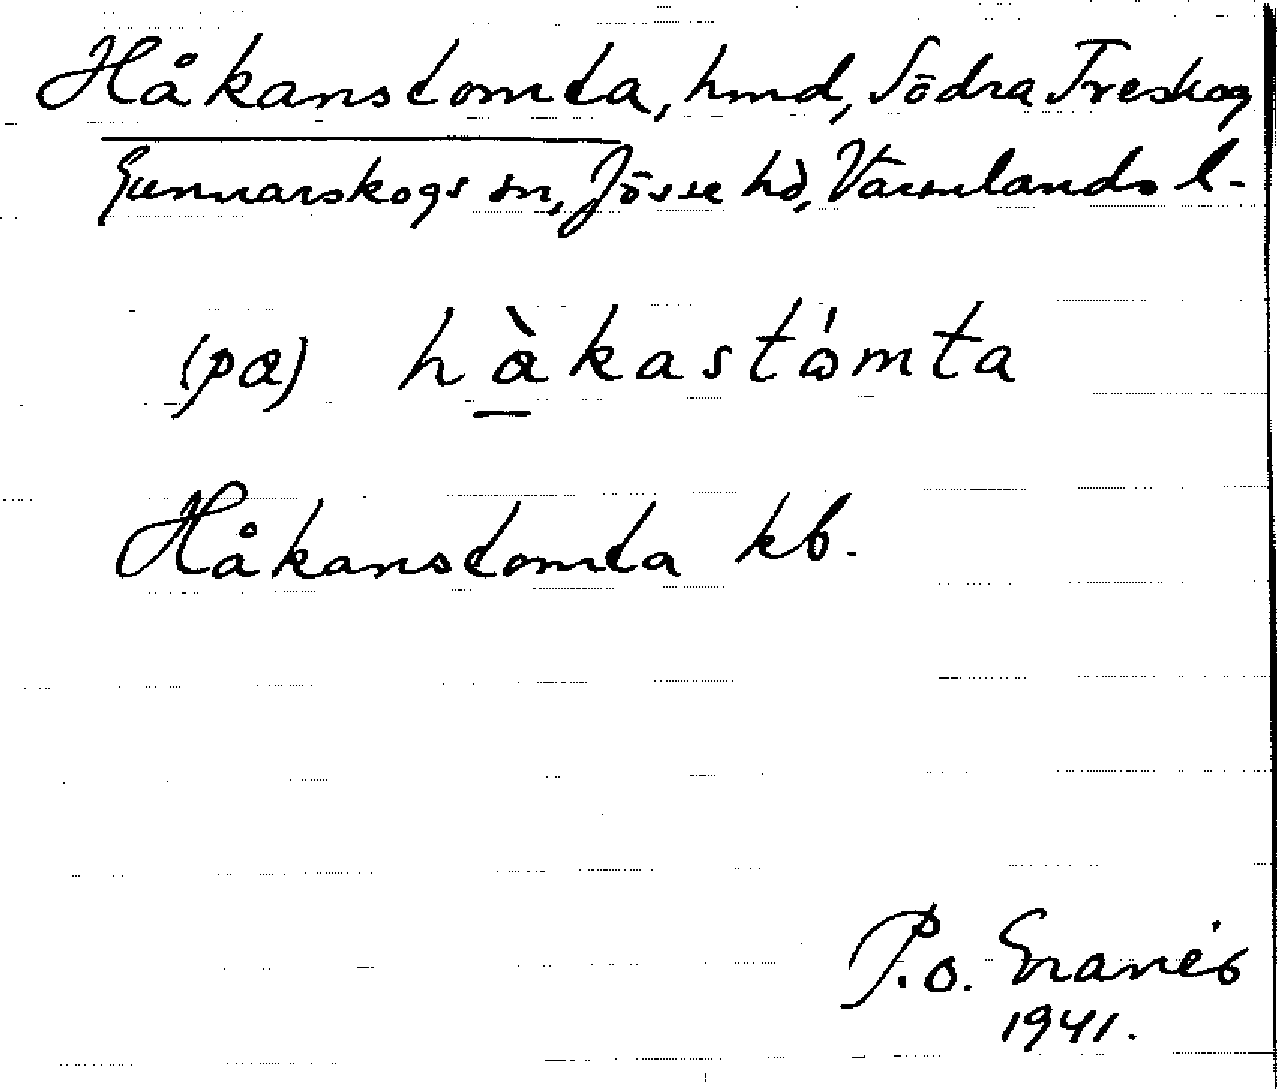 Håkanstomta, hmd, Södra Treskog
Gunnarskogs sn, Jösse hd, Värmlands l.
(pα) hὰkastómta
Håkanstomta kb.
P.O.
1941.